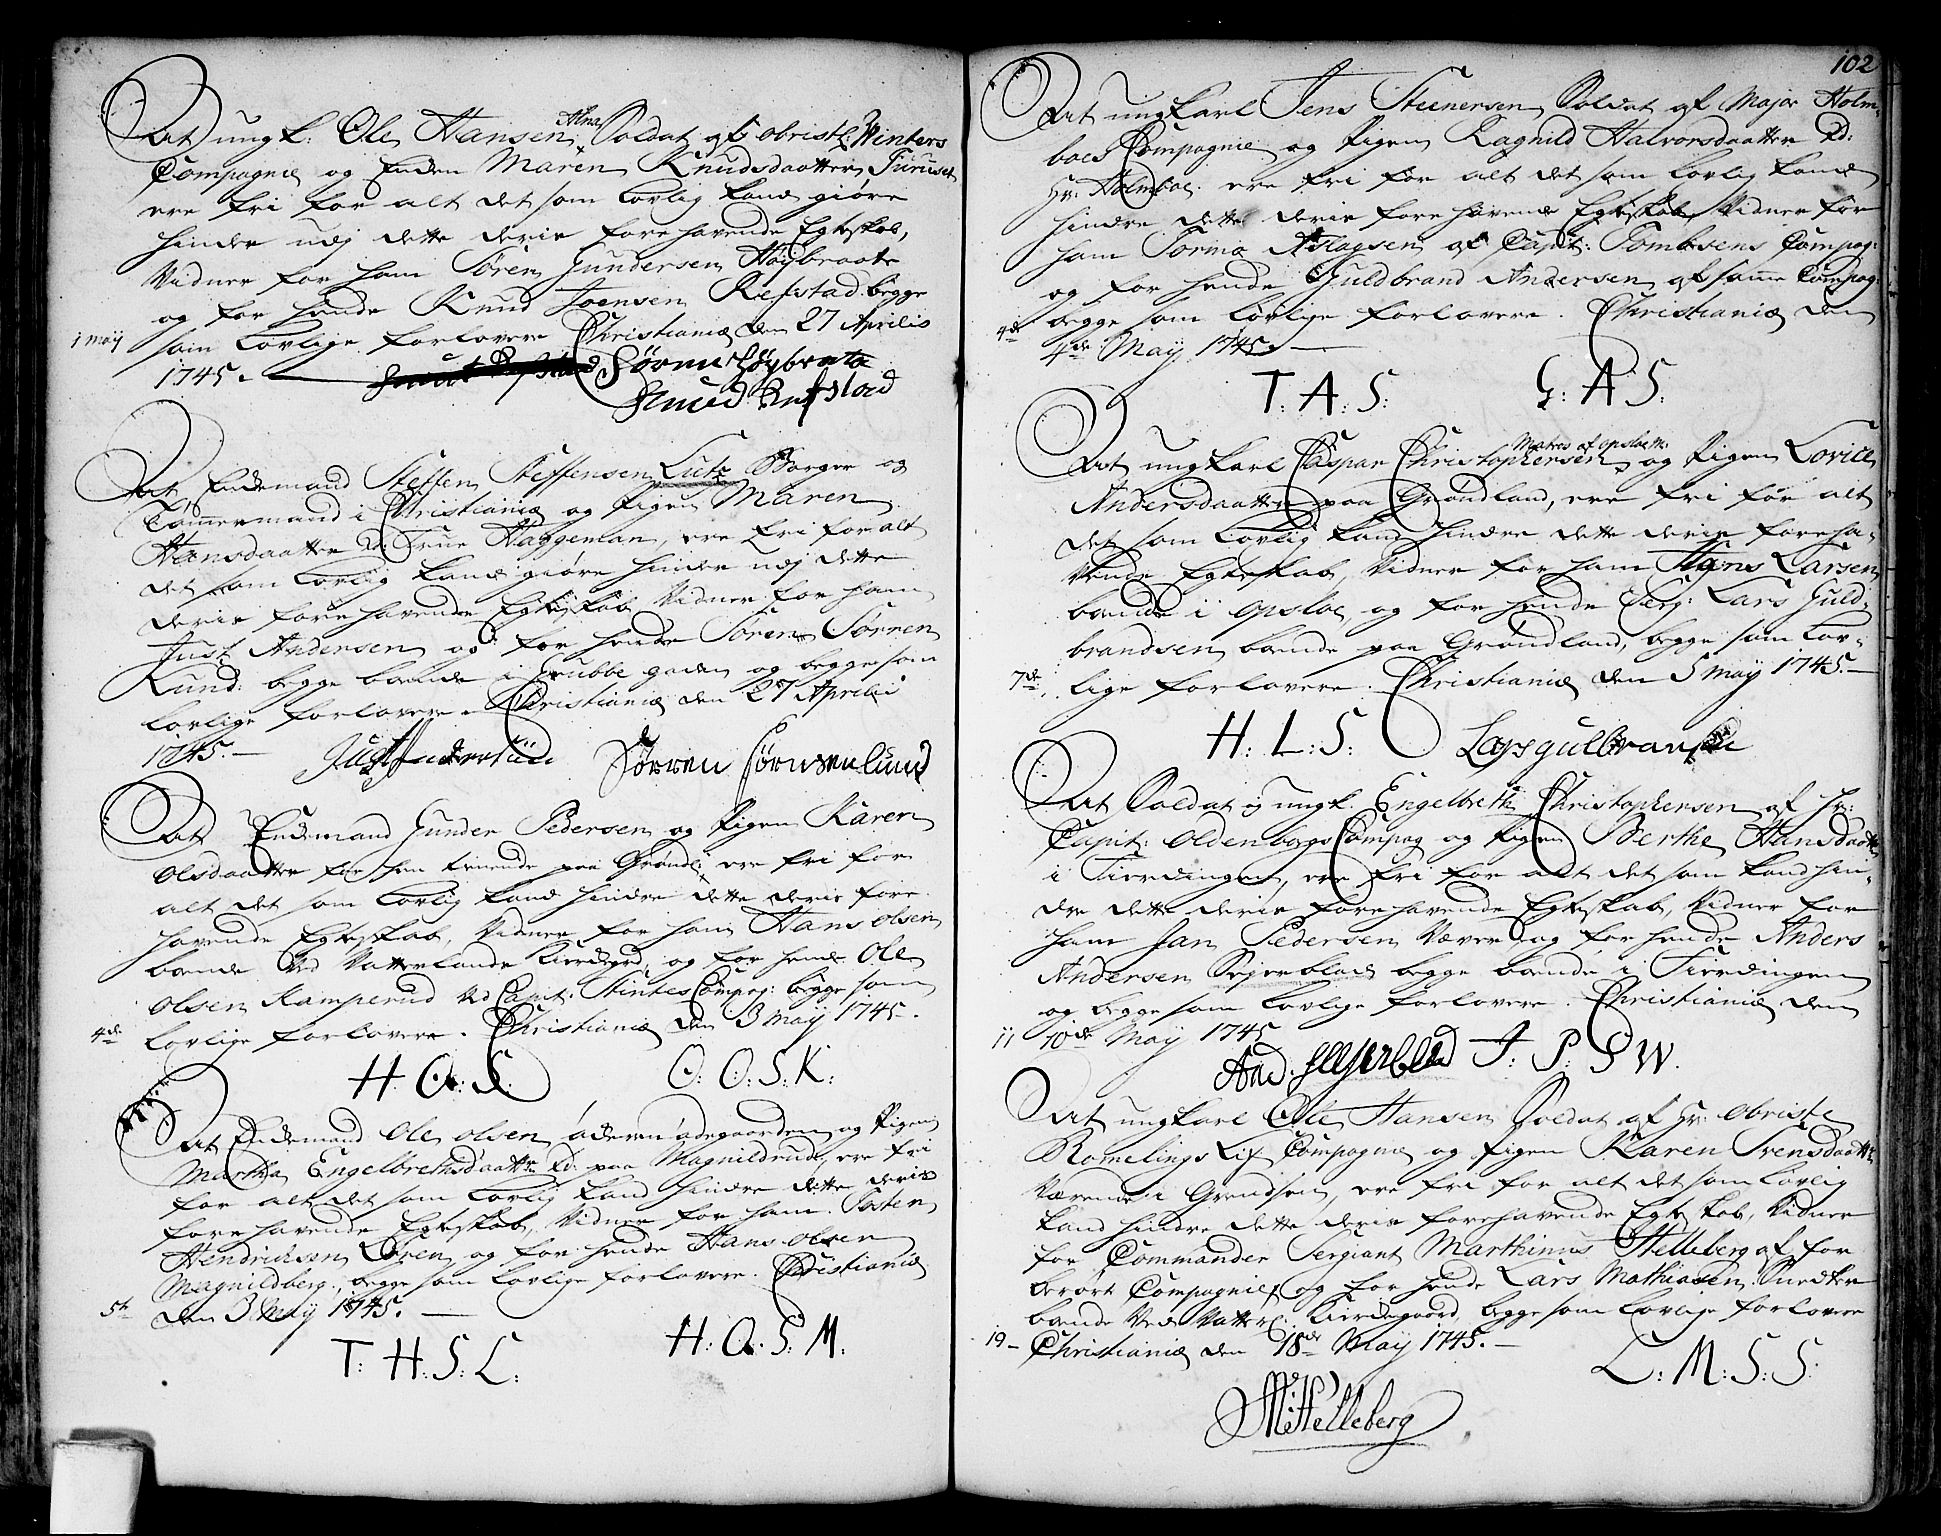 At ungk: Ole Hansen Alna Soldat af Obristl: Winters
Compagnie og Enken Maren Knudsdaatter Furuset
ere fri for alt det som Lovlig kand giøre
hinder udj dette deris forehavende Egteskab,
Vidner for ham Søren Gundersen Høybraate
og for hende Knud Joensen Refstad begge
1 may som Lovlige forlovere Christiania den 27 Aprilis
1745.
Søren Høybraata
Knud Refstad
At Enkemand Steffen Steffensen Lutz Borger og
Tømermand i Christiania og Pigen Maren
Hansdaatter Ved: Frue Haggeman, ere fri for alt
det som Lovlig kand giøre hinder udj dette
deris forehavende Egteskab Vidner for ham
Just Andersen og for hende Søren Sørren
Lund: begge boende i Grubbe gaden og begge som
lovlige forlovere. Christiania den 27 Aprili
1745.
Just Andersen
Sørren Sørnsen Lund
At Enkemand Gunder Pedersen og Pigen Karen
Olsdaatter for ham tienende paa Grønl: ere fri for
alt det som Lovlig kand hindre dette deris fore
havende Egteskab, Vidner for ham Hans Olsen
boende Ved Vatterlands Kierkegrd, og for hende Ole
Olsen Kamperud Ved Capit: Hintes Compag: begge som
4de lovlige forlovere. Christiania den 3 may 1745.
H. O. S. O: O. S. K:
At Enkemand Ole Olsen Aderen Ødegaarden og Pigen
Martha Engelbrethsdaatter Ved: paa Magnildrud, ere fri
for alt det som Lovlig kand hindre dette deris
forehavende Egteskab, Vidner for ham Tosten
Hendrichsen Løren og for hende Hans Olsen
Magnildberg, begge som Lovlige forlovere. Christiania
5te den 3 May 1745.
T: H: S: L: H: O. S: M.
102
At ungkarl Jens Steenersen Soldat af Major Holm-
boes Compagnie og Pigen Ragnild Halvorsdaatter Ved:
Hr: Holmboe. ere fri for alt det som lovlig kand
hindre dette deris forehavende Egteskab, Vidner for
ham Tormo Aslagsen af Capit: Tombsens Compag:
og for hende Guldbrand Andersen af samme Compag:
begge som Lovlige forlovere. Christiania den
4de 4de May 1745.
T: A: S: G: A S:
At ungkarl Caspar Christophersen Matros af Opsloe og Pigen Lovice
Andersdaatter paa Grønland, ere fri for alt
det som Lovlig kand hindre dette deris foreha-
vende Egteskab, Vidner for ham Hans Larsen
boende i Opsloe, og for hende Serg: Lars Guld-
brandsen boende paa Grønland, begge som lov-
7de lige forlovere. Christiania den 5 may 1745.
H: L: S: Lars gulbransen
At Soldat og ungk. Engelbreth Christophersen af Hr:
Capit: Oldenborgs Compag og Pigen Berthe Hansdaatter
i Fierdingen, ere fri for alt det som kand hin-
dre dette deris forehavende Egteskab, Vidner for
ham Jan Pedersen Væver og for hende Anders
Andersen Sejerblad begge boende i Fierdingen
og begge som Lovlige forlovere. Christiania den
11 10de May 1745
And. Sejerblad J: P: S W.
At ungkarl Ole Hansen Soldat af Hr: Obriste
Romelings Lif Compagnie og Pigen Karen Svensdaatter
Værende i Grendsen, ere fri for alt det som Lovlig
kand hindre dette deris forehavende Egteskab, Vidner
for Commander Sergiant Marthinus Helleberg af for
berørt Compagnie og for hende Lars Mathiasen Snedker
boende Ved Vatterl: Kierkegaard, begge som lovlige forlovere
19 Christiania den 18de May 1745.
L: M: S: S:
MHelleberg